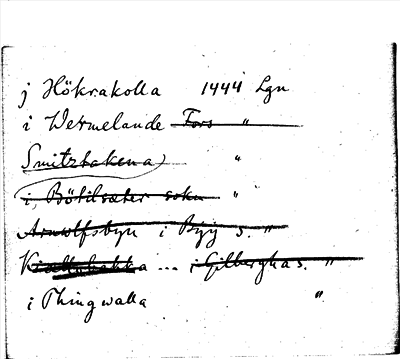 j Hökrakolla 1444 Lgn
i Wermelande Fors "
Smitzbakena "
i Bötilsäter sokn "
Arnolfsbyn i By s. "
Kisellzbakka ... i Gilbergha s. "
i Thingwalla "